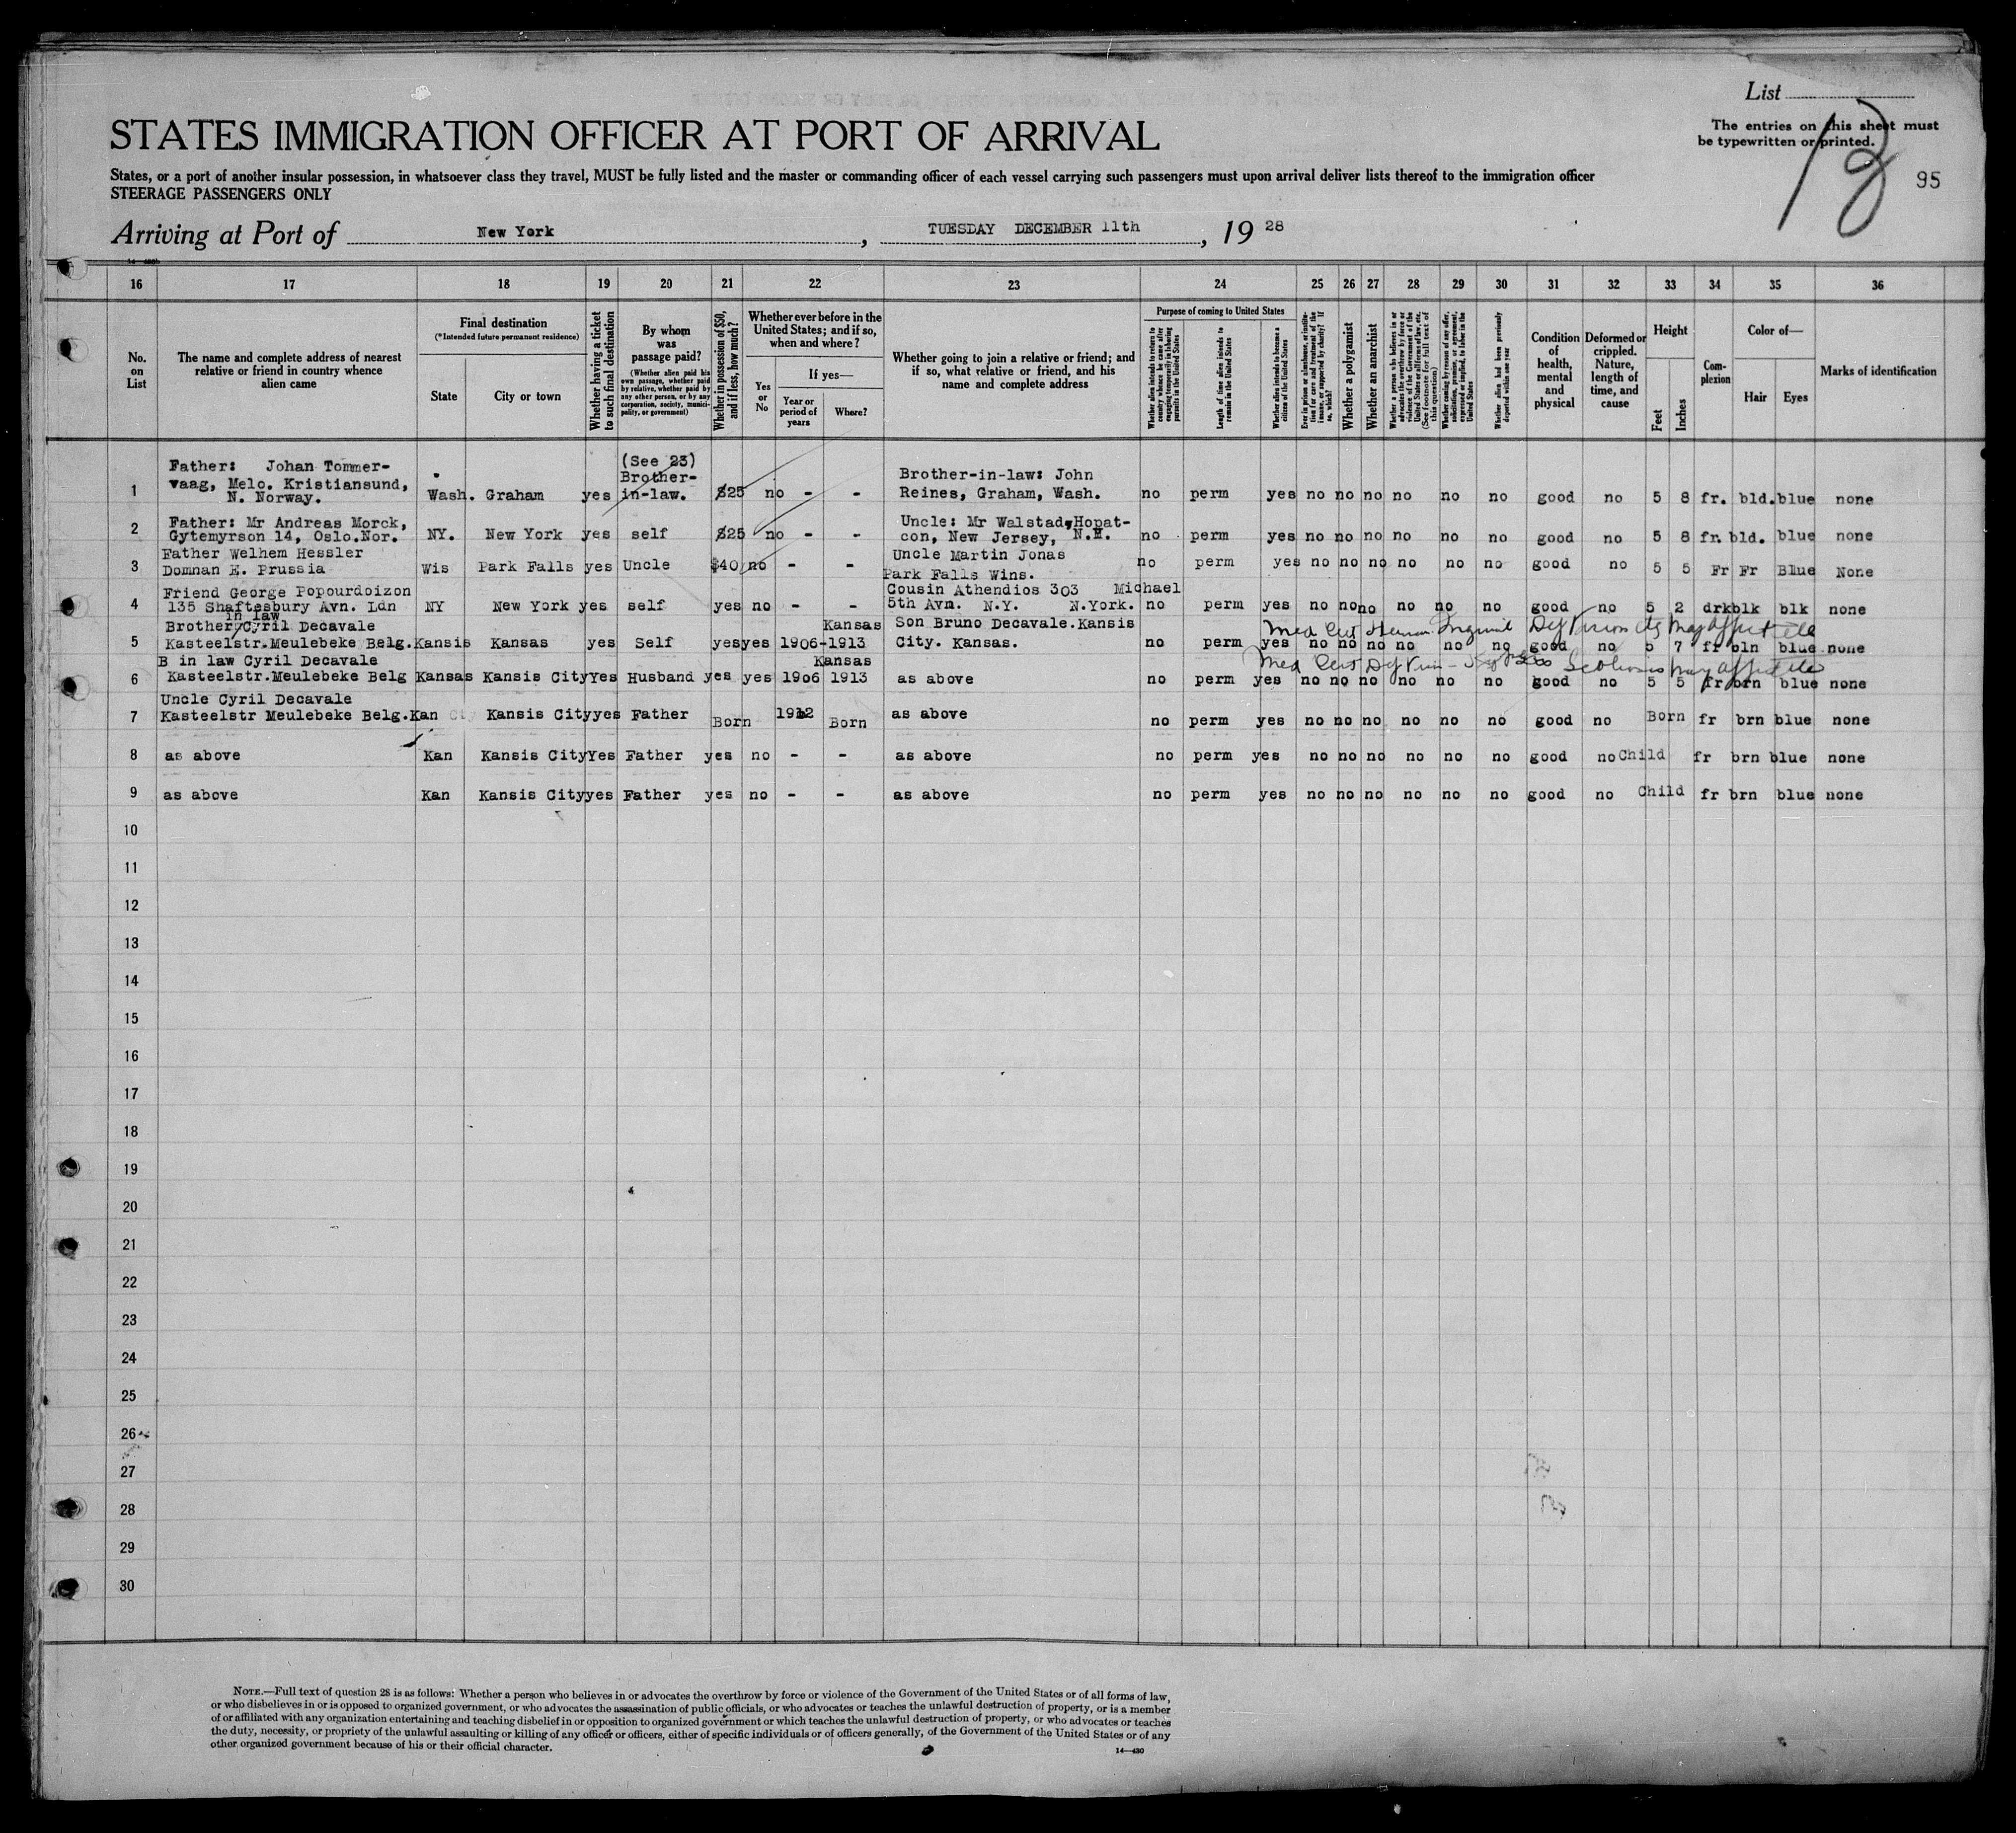 List
The entries on this sheet must
be typewritten or printed.
18
95
STATES IMMIGRATION OFFICER AT PORT OF ARRIVAL
States, or a port of another insular possession, in whatsoever class they travel, MUST be fully listed and the master or commanding officer of each vessel carrying such passengers must upon arrival deliver lists thereof to the immigration officer
STEERAGE PASSENGERS ONLY
Arriving at Port of New York, TUESDAY DECEMBER 11th, 1928
16 17 18 19 20 21 22 23 24 25 26 27 28 29 30 31 32 33 34 35 36
No. on List
The name and complete address of nearest relative or friend in country whence alien came
Final destination
(*Intended future permanent residence)
State
City or town
Whether having a ticket to such final destination
By whom was passage paid?
(Whether alien paid his own passage, whether paid by relative, whether paid by any other person, or by any corporation, society, municipality, or government)
Whether in possession of $50, and if less, how much?
Whether ever before in the United States; and if so, when and where?
Yes or No
If yes—
Year or period of years
Where?
Whether going to join a relative or friend; and if so, what relative or friend, and his name and complete address
Purpose of coming to United States
Whether alien intends to return to country whence he came after engaging temporarily in laboring pursuits in the United States
Length of time alien intends to remain in the United States
Whether alien intends to become a citizen of the United States
Ever in prison or almshouse, or institution for care and treatment of the insane, or supported by charity? If so, which?
Whether a polygamist
Whether an anarchist
(See footnote for full text of this question)
Whether coming by reason of any offer, solicitation, promise, or agreement, expressed or implied, to labor in the United States
Whether alien had been previously deported within one year
Condition of health, mental and physical
Deformed or crippled. Nature, length of time, and cause
Height
Feet
Inches
Complexion
Color of—
Hair
Eyes
Marks of identification
1 Father: Johan Tommervaag, Melo. Kristiansund, N. Norway. Wash. Graham yes (See 23) Brother-in-law. $25 no - - Brother-in-law: John Reines, Graham, Wash. no perm yes no no no no no no good no 5 8 fr. bld. blue none
2 Father: Mr Andreas Morck, Gytemyrson 14, Oslo.Nor. NY. New York yes self $25 no - - Uncle: Mr Walstad, Hopatcon, New Jersey, N.H. no perm yes no no no no no no good no 5 8 fr. bld. blue none
3 Father Welhem Hessler Domnan E. Prussia Wis Park Falls yes Uncle $40 no - - Uncle Martin Jonas Park Falls Wins. no perm yes no no no no no no good no 5 5 Fr Fr Blue None
4 Friend George Popourdoizon 135 Shaftesbury Avn. Ldn NY New York yes self yes no - - Cousin Athendios 303 Michael 5th Avn. N.Y. N.York. no perm yes no no no no no no good no 5 2 drk blk blk none
5 Brother in law Cyril Decavale Kasteelstr.Meulebeke Belg. Kansis Kansas yes Self yes yes 1906-1913 Kansas Son Bruno Decavale.Kansis City. Kansas. no perm yes no no no no no no good no 5 7 fr bln blue none
6 B in law Cyril Decavale Kasteelstr.Meulebeke Belg Kansas Kansis City Yes Husband yes yes 1906 1913 Kansas as above no perm yes no no no no no no good no 5 5 fr brn blue none
7 Uncle Cyril Decavale Kasteelstr Meulebeke Belg. Kan Kansis City yes Father Born 1912 Born as above no perm yes no no no no no no good no Born fr brn blue none
8 as above Kan Kansis City Yes Father yes no - - as above no perm yes no no no no no no good no Child fr brn blue none
9 as above Kan Kansis City yes Father yes no - - as above no perm yes no no no no no no good no Child fr brn blue none
10
11
12
13
14
15
16
17
18
19
20
21
22
23
24
25
26
27
28
29
30
NOTE.—Full text of question 28 is as follows: Whether a person who believes in or advocates the overthrow by force or violence of the Government of the United States or of all forms of law,
or who disbelieves in or is opposed to organized government, or who advocates the assassination of public officials, or who advocates or teaches the unlawful destruction of property, or is a member
of or affiliated with any organization entertaining and teaching disbelief in or opposition to organized government or which teaches the unlawful destruction of property, or who advocates or teaches
the duty, necessity, or propriety of the unlawful assaulting or killing of any officer or officers, either of specific individuals or of officers generally, of the Government of the United States or of any
other organized government because of his or their official character.
14—430